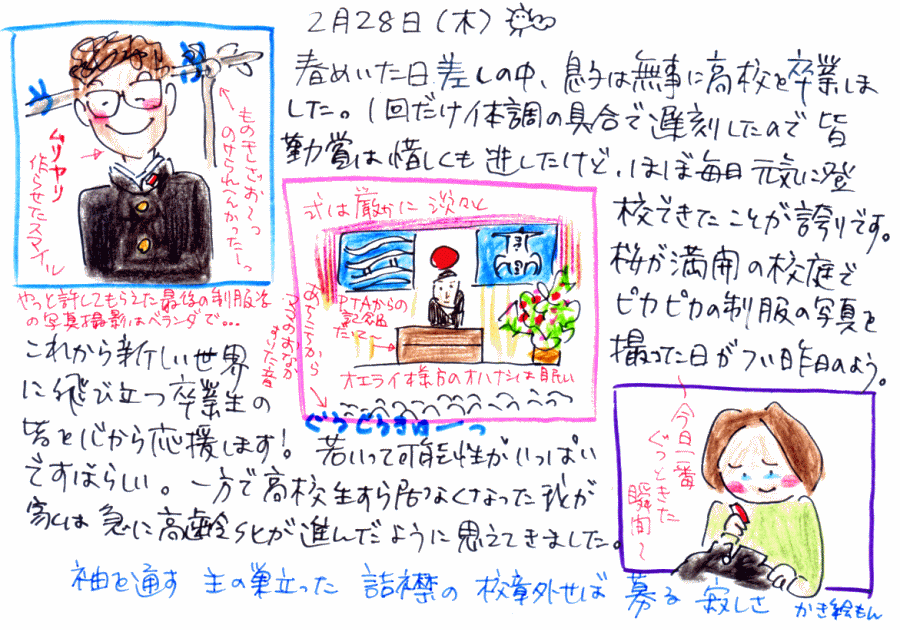 2月28日(木)
春めいた日差しの中、息子は無事に高校を卒業しま
した。1回だけ体調の具合で遅刻したので皆
勤賞は惜しくも逃したけど、ほぼ毎日元気に登
校できたことが誇りです。
桜が満開の校庭で
ピカピカの制服の写真を
撮った日がつい昨日のよう。
ムリヤリ
作らせたスマイル
ものほしざお〜っ
のけられへんかったーっ
やっと許してもらえた最後の制服姿
の写真撮影はベランダで…
式は厳かに淡々と
PTAからの
記念品
だて〜
オエライ様方のオハナシは眠い
あちこちから
ママのおなか
なった音
ぐるぐるきゅーっ
これから新しい世界
に飛び立つ卒業生の
皆を心から応援します!
若いって可能性がいっぱい
ですばらしい。一方で高校生すら居なくなった我が
家は急に高齢化が進んだように思えてきました。
今日一番
ぐっときた
瞬間〜
袖を通す 主の巣立った 詰襟の 校章外せば 募る 寂しさ
かき絵もん